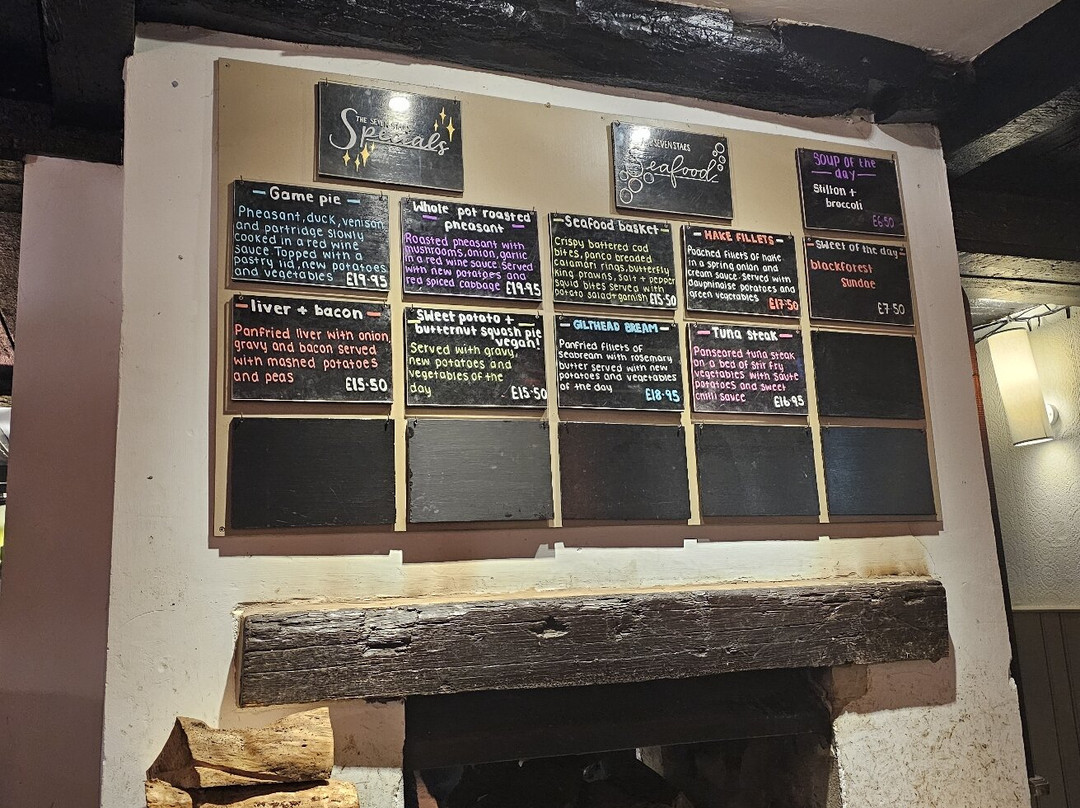 THE SEVEN STARS
Specials
THE SEVEN STARS
Seafood
Game pie
Pheasant, duck, venison,
and partridge slowly
cooked in a red wine
sauce. Topped with a
pastry lid, new potatoes
and vegetables £19.95
Whole pot roasted
pheasant
Roasted pheasant with
mushrooms, onion, garlic
in a red wine sauce. Served
with new potatoes and
red spiced cabbage £19.95
Seafood basket
Crispy battered cod
bites, panko breaded
calamari rings, butterfly
king prawns, salt + pepper
squid bites served with
potato salad + garnish £15.50
HAKE FILLETS
Poached fillets of hake
in a spring onion and
cream sauce. Served with
dauphinoise potatoes and
green vegetables £17.50
Soup of the
day
Stilton +
broccoli
£6.50
Sweet of the day
blackforest
sundae
£7.50
liver + bacon
Panfried liver with onion
gravy and bacon served
with mashed potatoes
and peas £15.50
Sweet potato +
butternut squash pie
vegan!
Served with gravy,
new potatoes and
vegetables of the
day £15.50
GILTHEAD BREAM
Panfried fillets of
seabream with rosemary
butter served with new
potatoes and vegetables
of the day £18.95
Tuna steak
Panseared tuna steak
on a bed of stir fry
vegetables with saute
potatoes and sweet
chilli sauce £16.95